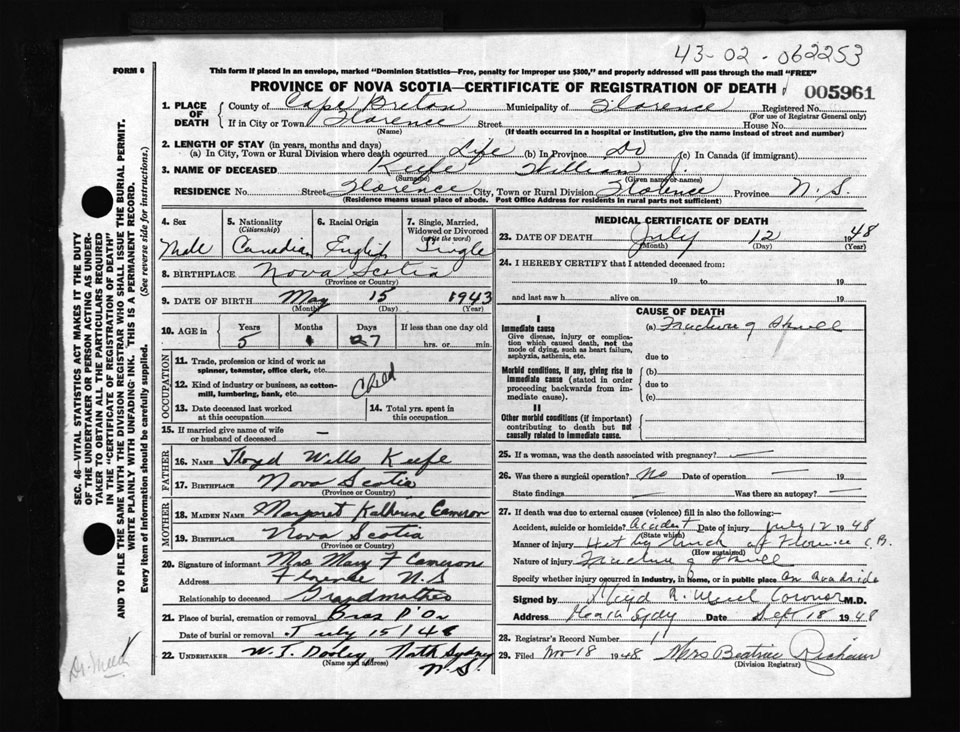 43-02-062253
FORM 6
This form if placed in an envelope, marked "Dominion Statistics—Free, penalty for improper use $300," and properly addressed will pass through the mail "FREE"
PROVINCE OF NOVA SCOTIA—CERTIFICATE OF REGISTRATION OF DEATH
005961
1. PLACE OF DEATH
County of Cape Breton Municipality of Florence Registered No.
(For use of Registrar General only)
If in City or Town Florence Street House No.
(Name) (If death occurred in a hospital or institution, give the name instead of street and number)
2. LENGTH OF STAY (in years, months and days)
(a) In City, Town or Rural Division where death occurred Life (b) In Province Do (c) In Canada (if immigrant)
3. NAME OF DECEASED Keefe William J.
(Surname) (Given name or names)
RESIDENCE No. Street Florence City, Town or Rural Division Florence Province N.S.
(Residence means usual place of abode. Post Office Address for residents in rural parts not sufficient)
4. Sex
Male
5. Nationality
(Citizenship)
Canadian
6. Racial Origin
English
7. Single, Married, Widowed or Divorced
(write the word)
Single
8. BIRTHPLACE Nova Scotia
(Province or Country)
9. DATE OF BIRTH May 15 1943
(Month) (Day) (Year)
10. AGE in
Years Months Days If less than one day old
5 1 27 hrs. or min.
OCCUPATION
11. Trade, profession or kind of work as
spinner, teamster, office clerk, etc.
12. Kind of industry or business, as cotton-
mill, lumbering, bank, etc. Child
13. Date deceased last worked
at this occupation
14. Total yrs. spent in
this occupation
15. If married give name of wife
or husband of deceased —
FATHER
16. NAME Floyd Wills Keefe
17. BIRTHPLACE Nova Scotia
(Province or Country)
MOTHER
18. MAIDEN NAME Margaret Katherine Cameron
19. BIRTHPLACE Nova Scotia
(Province or Country)
20. Signature of informant Mrs Mary F Cameron
Address Florence N.S
Relationship to deceased Grandmother
21. Place of burial, cremation or removal Bras D'Or
Date of burial or removal July 15/48
22. UNDERTAKER W. J. Dooley North Sydney
(Name and address) N.S.
MEDICAL CERTIFICATE OF DEATH
23. DATE OF DEATH July 12 1948
(Month) (Day) (Year)
24. I HEREBY CERTIFY that I attended deceased from:
19 to 19
and last saw h alive on 19
CAUSE OF DEATH
I
Immediate cause
Give disease, injury or complica-
tion which caused death, not the
mode of dying, such as heart failure,
asphyxia, asthenia, etc.
(a) Fracture of Skull
due to
Morbid conditions, if any, giving rise to
immediate cause (stated in order
proceeding backwards from im-
mediate cause).
(b)
due to
(c)
II
Other morbid conditions (if important)
contributing to death but not
causally related to immediate cause.
25. If a woman, was the death associated with pregnancy? —
26. Was there a surgical operation? No Date of operation — 19
State findings — Was there an autopsy? —
27. If death was due to external causes (violence) fill in also the following:—
Accident, suicide or homicide? Accident Date of injury July 12 1948
(State which)
Manner of injury Hit by truck at Florence C.B.
(How sustained)
Nature of injury Fracture of Skull
Specify whether injury occurred in industry, in home, or in public place
Signed by Coroner M.D.
Address Date Sept 18 1948
28. Registrar's Record Number 11
29. Filed Nov 18 1948 Mrs Beatrice
(Division Registrar)
SEC. 46—VITAL STATISTICS ACT MAKES IT THE DUTY
OF THE UNDERTAKER OR PERSON ACTING AS UNDER-
TAKER TO OBTAIN ALL THE PARTICULARS REQUIRED
IN THE "CERTIFICATE OF REGISTRATION OF DEATH"
AND TO FILE THE SAME WITH THE DIVISION REGISTRAR WHO SHALL ISSUE THE BURIAL PERMIT.
WRITE PLAINLY WITH UNFADING INK. THIS IS A PERMANENT RECORD.
Every item of information should be carefully supplied. (See reverse side for instructions.)